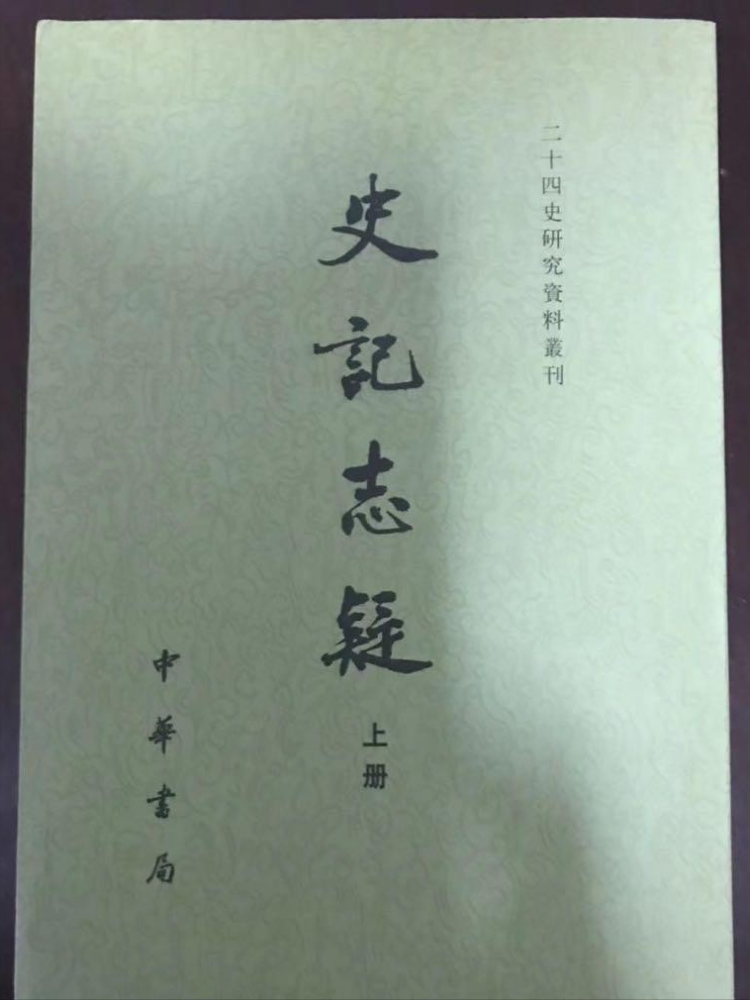 二十四史研究資料叢刊
史記志疑
上册
中華書局